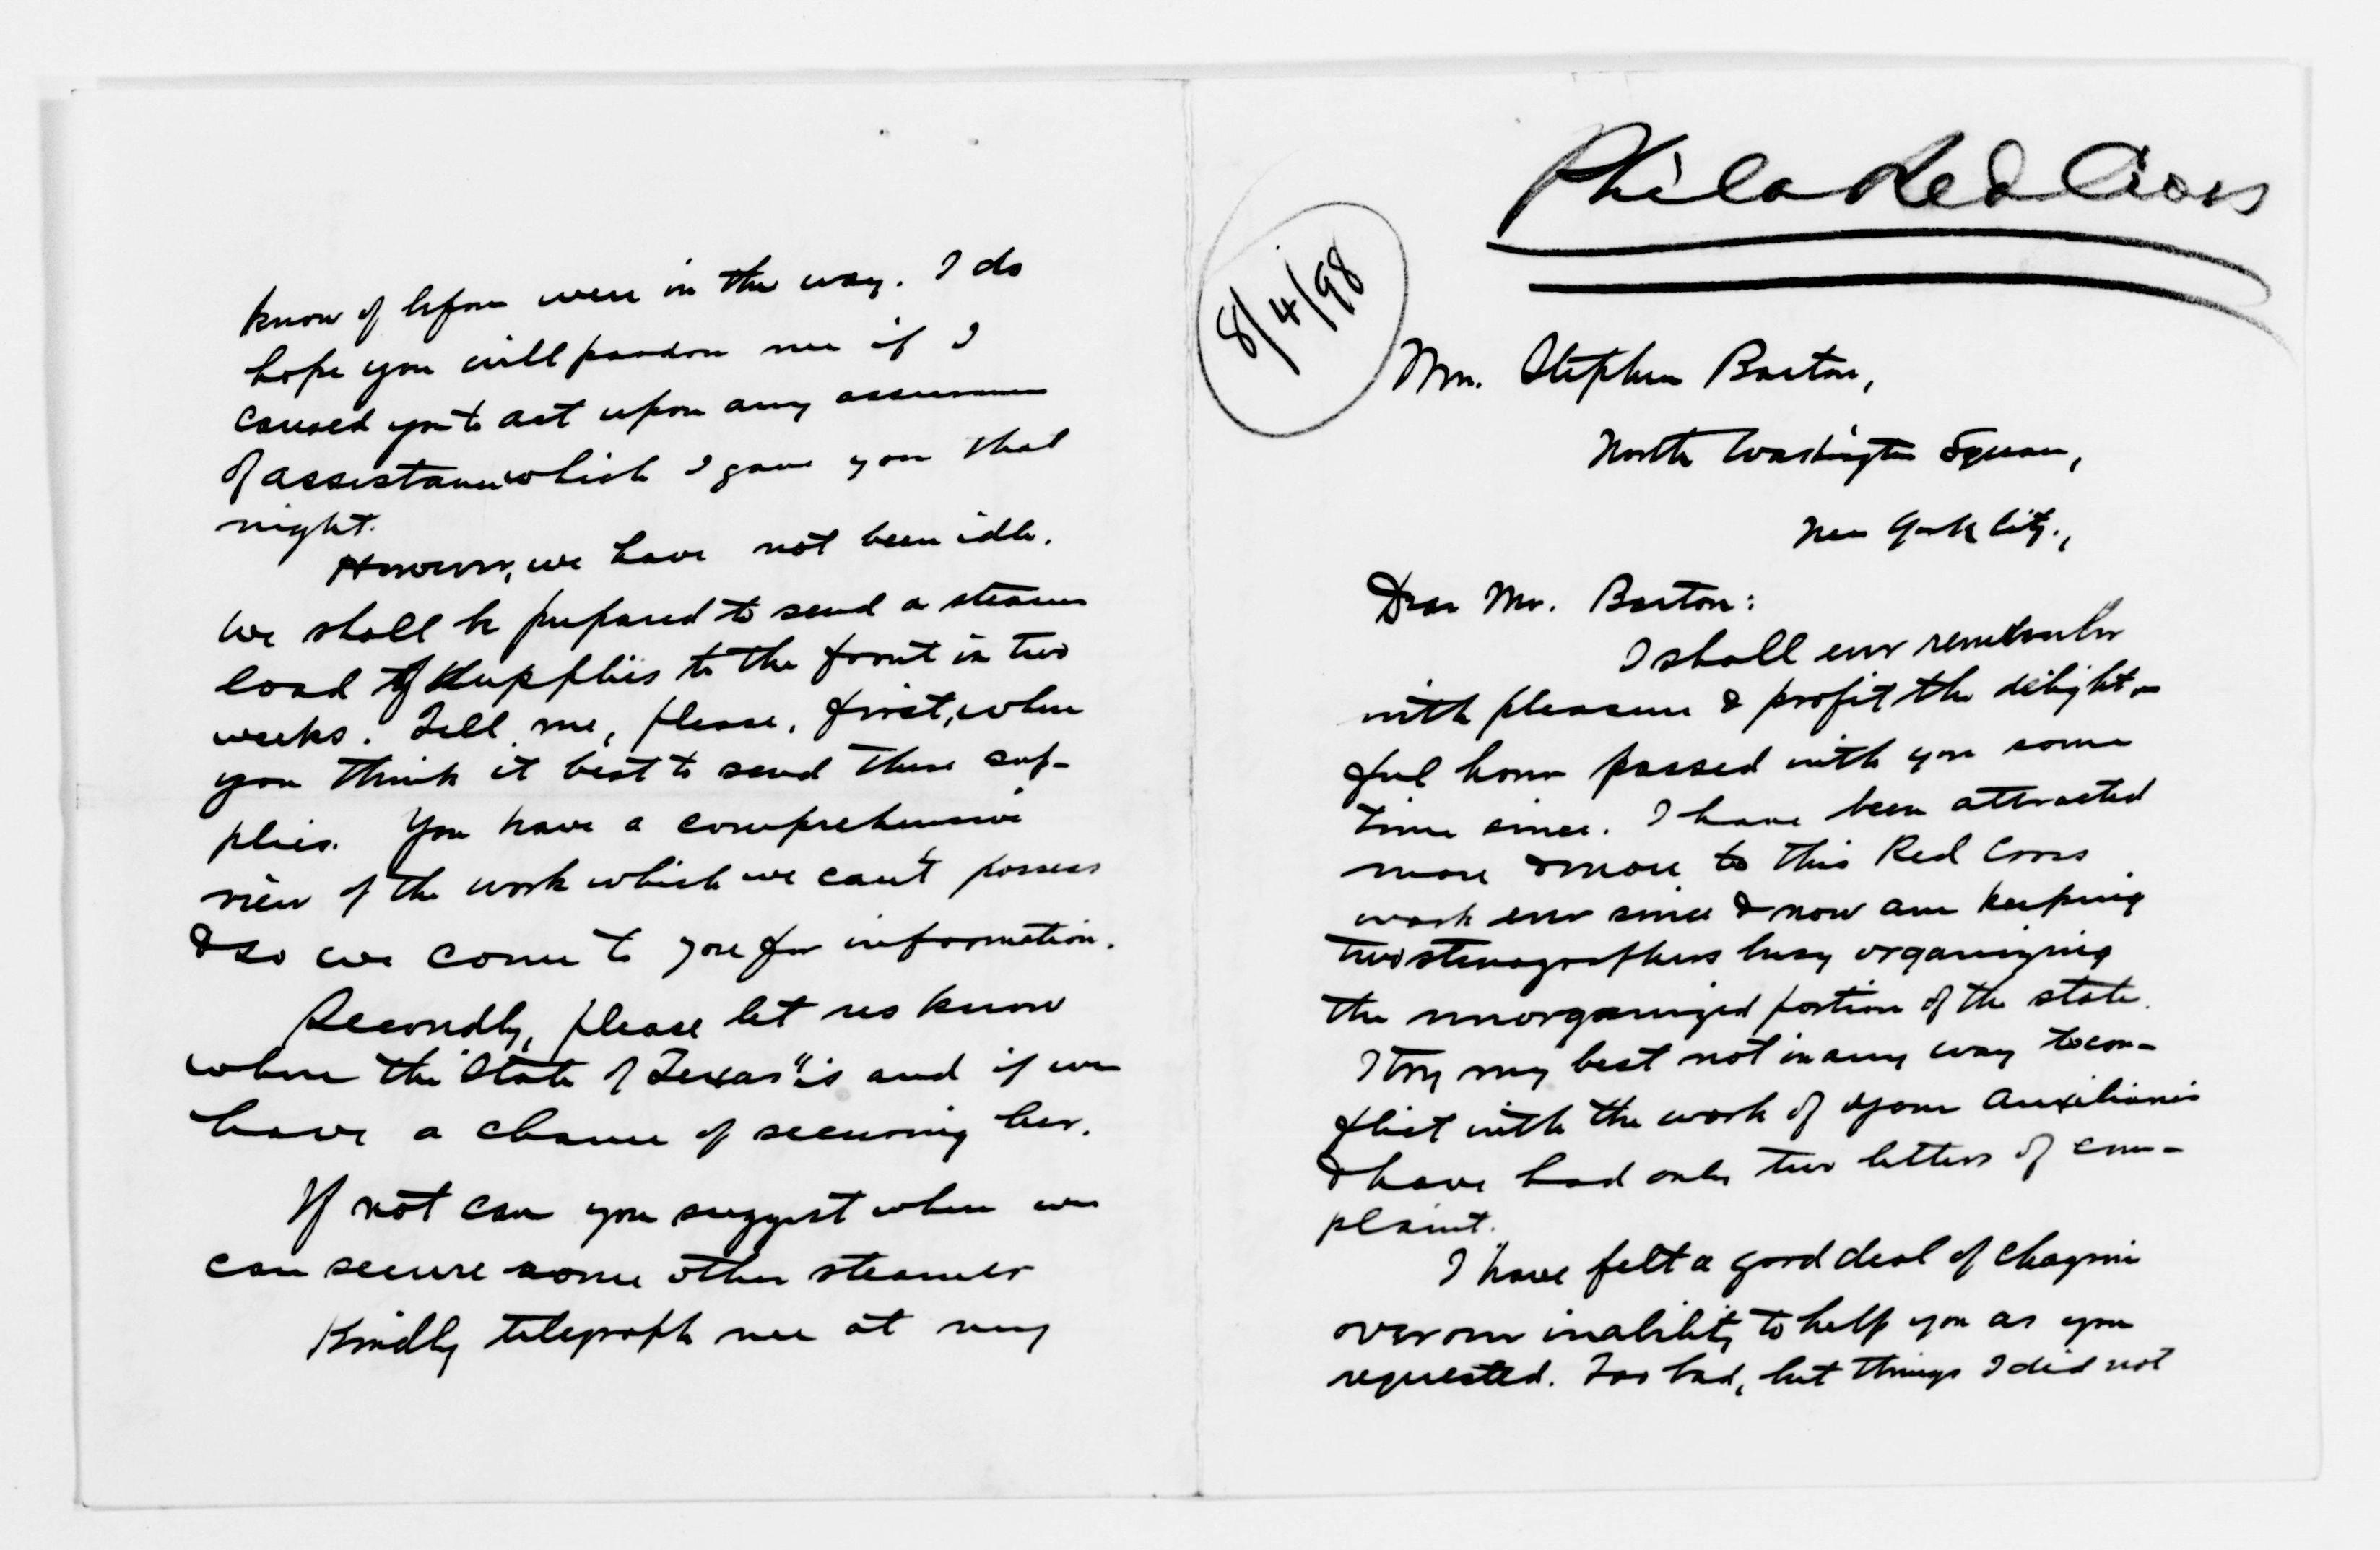 Phila Red Cross
8/4/98
Mr. Stephen Barton,
North Washington Square,
New York City.,
Dear Mr. Barton:
I shall ever remember
with pleasure & profit the delight-
ful hour passed with you some
time since. I have been attracted
more & more to this Red Cross
work ever since & now am keeping
two stenographers busy organizing
the unorganized portion of the state.
I try my best not in any way to con-
flict with the work of your Auxiliaries
& have had only two letters of com-
plaint.
I have felt a good deal of chagrin
over our inability to help you as you
requested. Too bad, but things I did not
know of before were in the way. I do
hope you will pardon me if I
caused you to act upon any assurance
of assistance which I gave you that
night.
However, we have not been idle.
We shall be prepared to send a steamer
load of supplies to the front in two
weeks. Tell me, please, first, when
you think it best to send these sup-
plies. You have a comprehensive
view of the work which we can't possess
& so we come to you for information.
Secondly, please let us know
where the "State of Texas" is and if we
have a chance of securing her.
If not can you suggest where we
can secure some other steamer
Kindly telegraph me at my